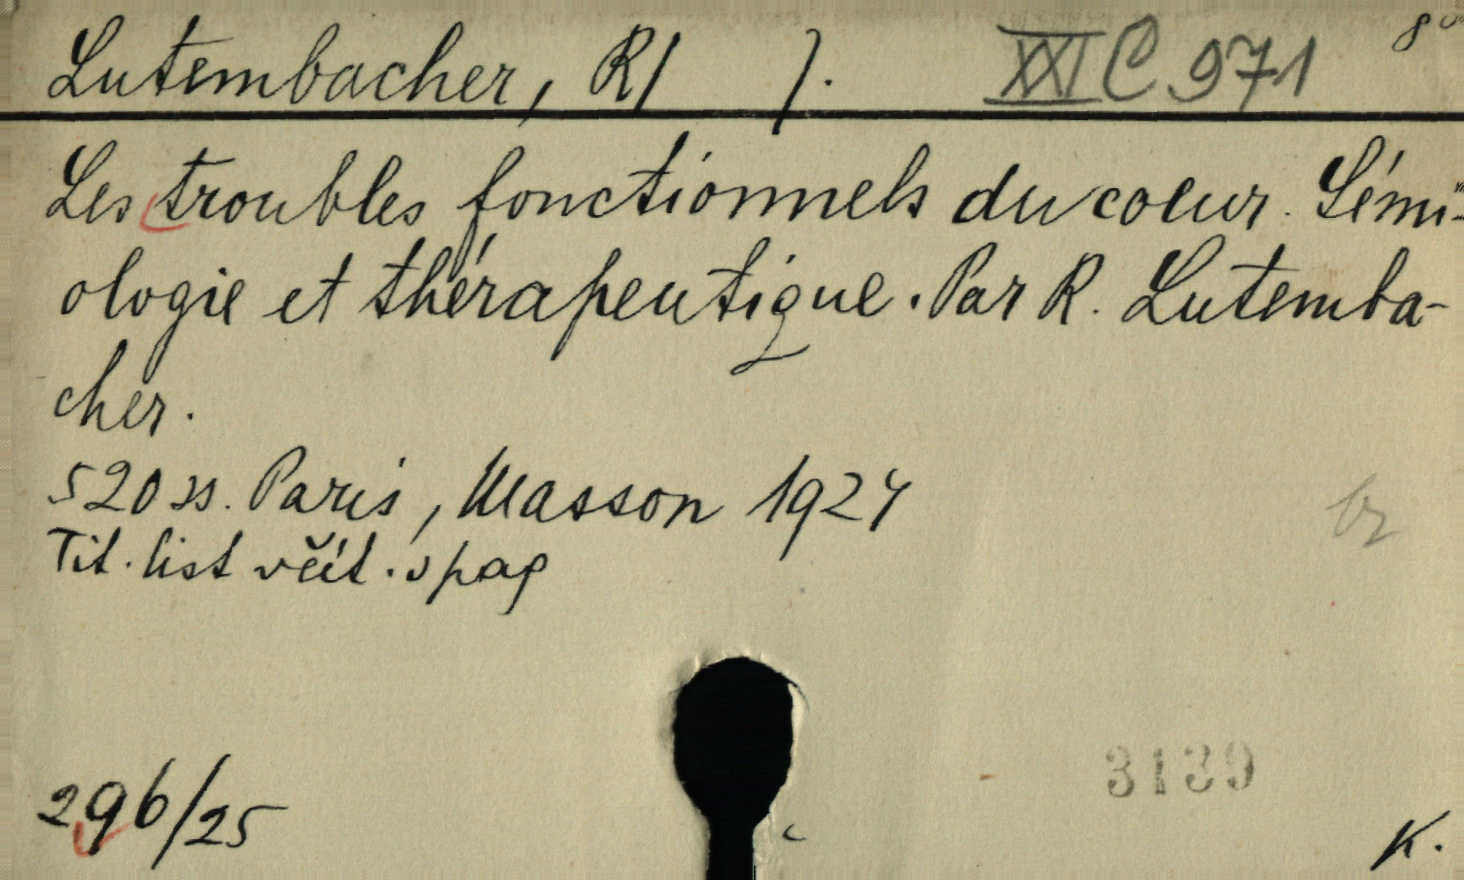 Lutembacher, R/ /. XXI C 971 8°
Les troubles fonctionnels du coeur. Sémi-
ologie et thérapeutique. Par R. Lutemba-
cher.
520 ss. Paris, Masson 1924
Tit. list včít. v pag
296/25
3139
K.